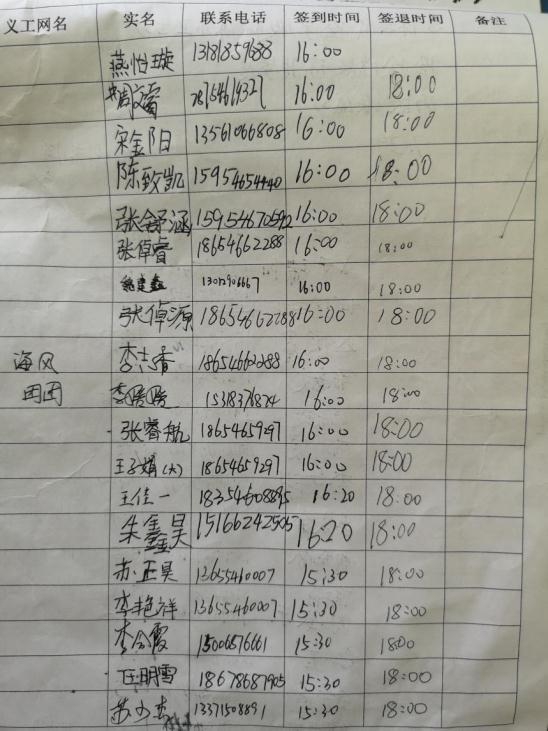 义工网名 实名 联系电话 签到时间 签退时间 备注
燕怡璇 13181859688 16:00
16:00 18:00
宋金阳 13561066808 16:00 18:00
陈致凯 15954654440 16:00 18:00
张舒涵 15954670592 16:00 18:00
张倬睿 18654662288 16:00 18:00
16:00 18:00
张倬源 18654662288 16:00 18:00
海风 李志香 18654662288 16:00 18:00
团团 李媛媛 15318376874 16:00 18:00
张睿航 18654659297 16:00 18:00
王子娟(大) 18654659297 16:00 18:00
王佳一 18354608895 16:20 18:00
朱鑫昊 15166242505 16:20 18:00
苏正昊 13655460007 15:30 18:00
李艳祥 13655460007 15:30 18:00
李会霞 15006876661 15:30 18:00
任明雪 18678687905 15:30 18:00
13371508891 15:30 18:00